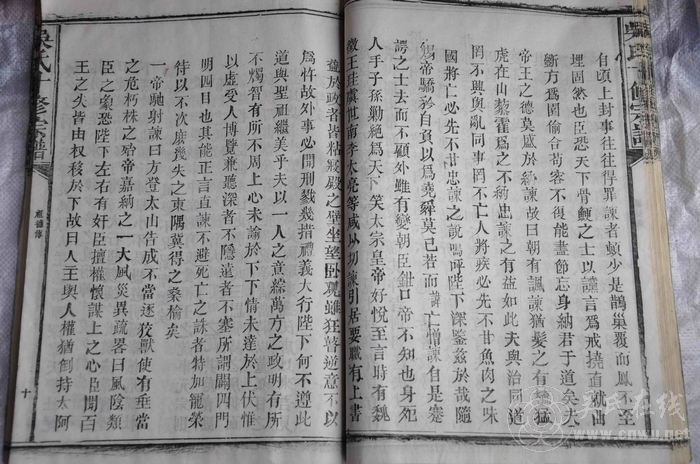 吳氏十修宗譜
自頃上封事往往得罪諫者頓少是鵲巢覆而鳳不至
理固然也臣恐天下骨鯁之士以讜言爲戒撓直就曲
方爲園偷合苟容不復能盡節忘身納君于道矣夫
帝王之德莫盛於納諫故曰朝有諷諫猶髮之有梳猛
虎在山藜藿爲之不納忠諫之有益如此夫與治同道
罔不興與亂同事罔不亡人將疾必先不甘魚肉之味
國將亡必先不甘忠諫之說嗚呼陛下深鑒兹於哉隨
煬帝驕矜自負以爲堯舜莫已若而諱亡憎諫自是蹇
諤之士去而不顧外雖有變朝臣鉗口帝不知也身死
人手子孫勦絕爲天下笑太宗皇帝好悅至言時有魏
徵王珪虞世南李大亮等咸以切諫引居要職有上書
益於政者皆粘寢殿之壁坐望卧現雖狂瞽逆意不以
爲忤故外事必聞刑戮幾措禮義大行陛下何不遵此
道與聖祖繼美乎夫以一人之意綜萬方之政明有所
不燭智有所不周上心未諭於下下情未達於上伏惟
以虛受人博覽兼聽深者不隱遠者不塞所謂闢四門
明四目也其能正言直諫不避死亡之誅者特加寵榮
待以不次庶幾失之東隅冀得之桑榆矣
一帝馳射諫曰方登太山告成不當逐狡獸使有垂當
之危朽株之殆帝嘉納之一大風災異疏畧曰風陰類
臣之象恐陛下左右有奸臣擅權懷謀上之心臣聞百
王之失皆由權移於下故曰人主與人權猶倒持太阿
吳氏十修宗譜
十
吴氏在线
www.cnwu.net